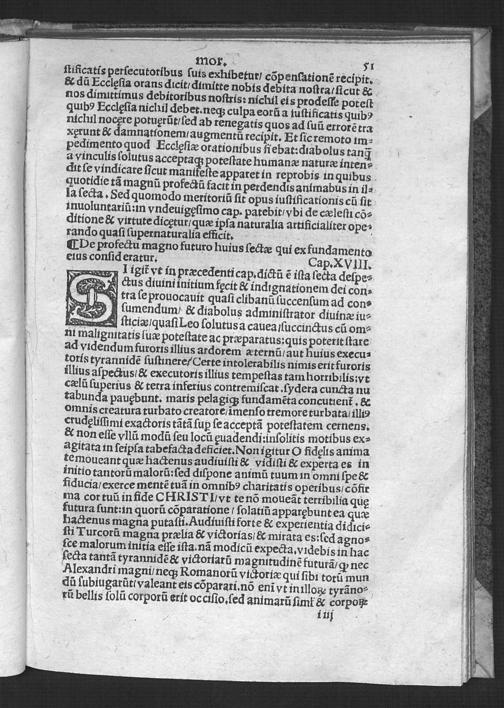 mor. 51
stificatis persecutoribus suis exhibetur/ cõpensationẽ recipit.
& dũ Ecclęsia orans dicit/ dimitte nobis debita nostra/ sicut &
nos dimittimus debitoribus nostris: nichil eis prodesse potest
quibꝰ Ecclęsia nichil debet. neqꝫ culpa eorũ a iustificatis quibꝰ
nichil nocere potuerũt/ sed ab renegatis quos ad suũ errorẽ tra
xęrunt & damnationem/ augmentũ recipit. Et sic remoto im=
pedimento quod Ecclesiæ orationibus fiebat: diabolus tanq̃
a vinculis solutus acceptaqꝫ potestate humanæ naturæ inten=
dit se vindicare sicut manifeste apparet in reprobis in quibus
quotidie tã magnũ profectũ facit in perdendis animabus in il=
la secta. Sed quomodo meritoriũ sit opus iustificationis cũ sit
inuoluntariũ: in vndeuigęsimo cap. patebit/ vbi de cælesti cõ=
ditione & virtute dicętur/ quæ ipsa naturalia artificialiter ope=
rando quasi supernaturalia efficit.
¶De profectu magno futuro huius sectæ qui ex fundamento
eius consideratur. Cap.XVIII.
SI igiẽ vt in præcedenti cap. dictũ ẽ ista secta despe=
ctus diuini initium fęcit & indignationem dei con=
tra se prouocauit quasi clibanũ succensum ad con=
sumendum/ & diabolus administrator diuinæ iu=
sticiæ/ quasi Leo solutus a cauea/ succinctus cũ om=
ni malignitatis suæ potestate ac præparatus: quis poterit stare
ad videndum furoris illius ardorem æternũ/ aut huius execu=
toris tyrannidẽ sustinere/ Certe intolerabilis nimis erit furoris
illius aspectus/ & executoris illius tempestas tam horribilis: vt
cælũ superius & terra inferius contremiscat. sydera cuncta nu
tabunda pauębunt. maris pelagiqꝫ fundamẽta concutient̃. &
omnis creatura turbato creatore/ imenso tremore turbata/ illiꝰ
crudęlissimi exactoris tãtã sup se acceptã potestatem cernens.
& non esse vllũ modũ seu locũ euadendi: insolitis motibus ex=
agitata in seipsa tabefacta deficiet. Non igitur O fidelis anima
te moueant quæ hactenus audiuisti & vidisti & experta es in
initio tantorũ malorũ: sed dispone animũ tuum in omni spe &
fiducia/ exerce mentẽ tuã in omnibꝰ charitatis operibus/ cõfir
ma cor tuũ in fide CHRISTI/ vt te nõ moueãt terribilia quę
futura sunt: in quorũ cõparatione/ solatiũ apparębunt ea quæ
hactenus magna putasti. Audiuisti forte & experientia didici=
sti Turcorũ magna prælia & victorias/ & mirata es: sed agno=
sce malorum initia esse ista. nã modicũ expecta, videbis in hac
secta tantã tyrannidẽ & victoriarũ magnitudinẽ futurã/ ꝙ nec
Alexandri magni/ neqꝫ Romanorũ victoriæ qui sibi totũ mun
dũ subiugarũt/ valeant eis cõparari. nõ eni vt in illoꝝ tyrãno=
rũ bellis solũ corporũ erit occisio, sed animarũ simł & corpoꝝ
i iij